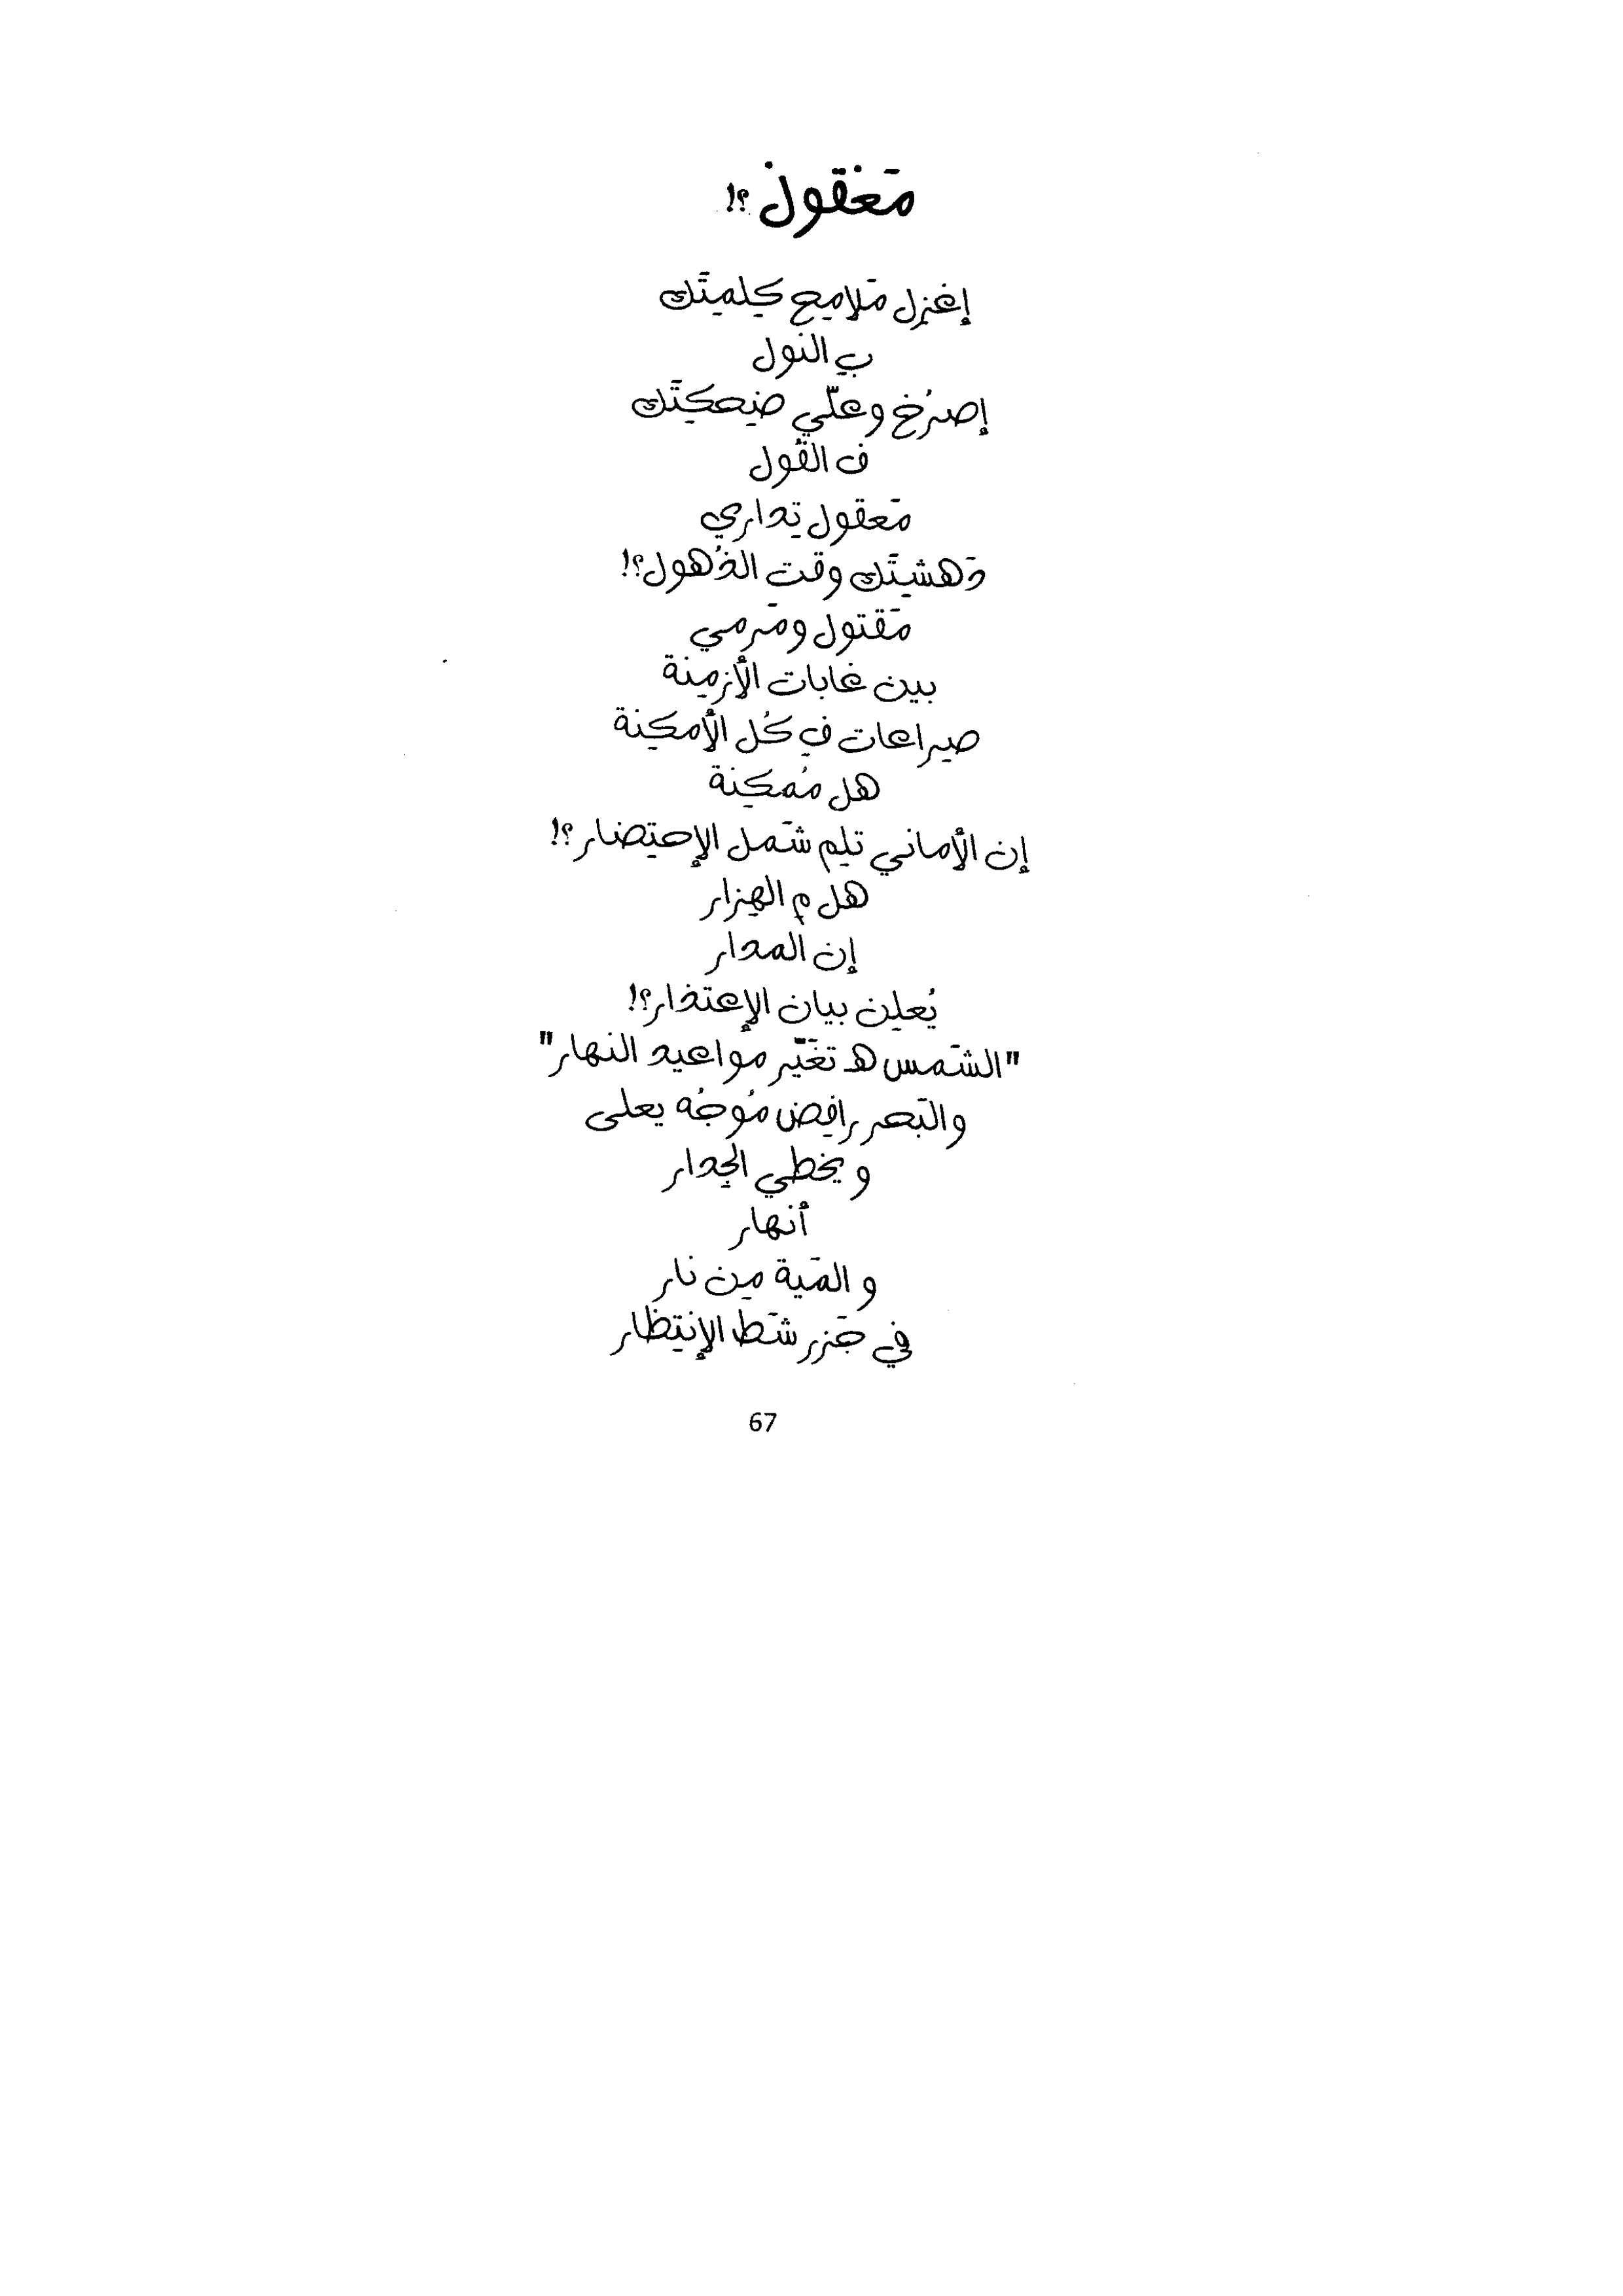 مَغقون ؟!
إغزِل مَلامِح كِلمِتَك
بِ النول
إصرُخ وعلّي ضِحكِتَك
ف القول
مَعقول تِداري
دَهشِتَك وقت الذُهول؟!
مَقتول ومَرمي
بين غابات الأزمِنة
صِراعات فِ كُل الأمكِنة
هل مُمكِنة
إن الأماني تلِم شَمل الإحتِضار؟!
هل مِ الهِزار
إن المدار
يُعلِن بيان الإعتذار؟!
"الشَمس هـ تغَيّر مَواعيد النهار"
والبَحر رافِض مُوجُه يعلى
و يخطي الجِدار
أنهار
و المَية مِن نار
في جَزر شَط الإنتِظار
67